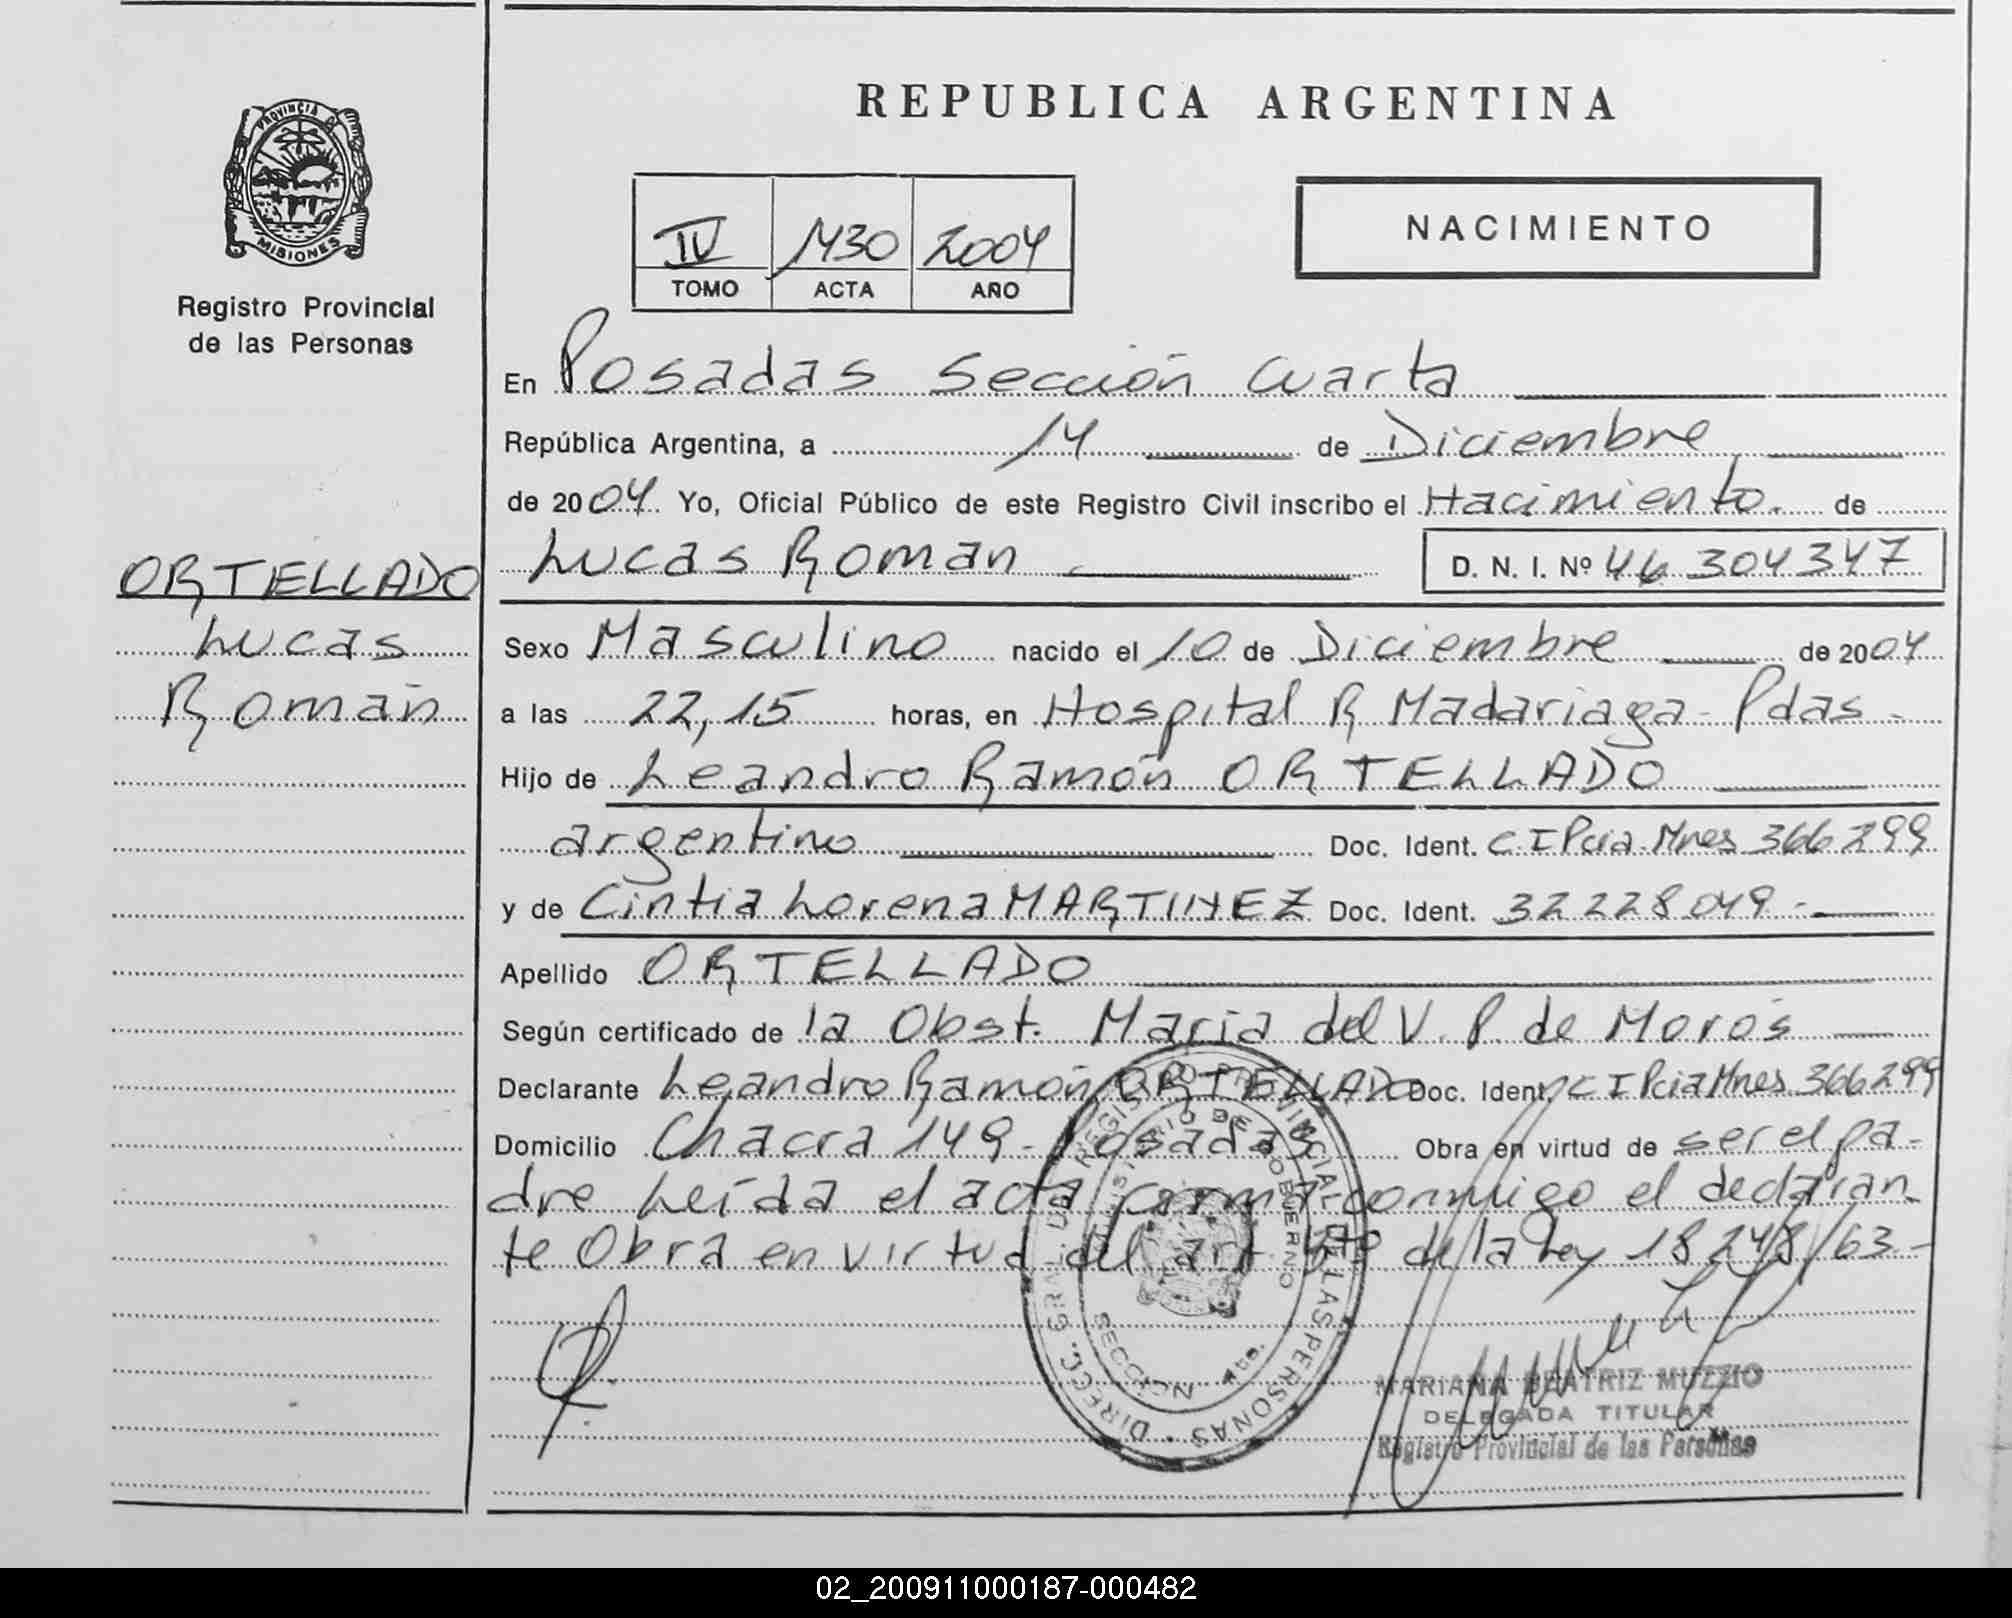 PROVINCIA D
MISIONES
Registro Provincial
de las Personas
REPUBLICA ARGENTINA
IV 1430 2004
TOMO ACTA AÑO
NACIMIENTO
En Posadas Sección Cuarta
República Argentina, a 14 de Diciembre
de 2004. Yo, Oficial Público de este Registro Civil inscribo el Nacimiento. de
ORTELLADO
Lucas
Román
Lucas Román D. N. I. Nº 46 304347
Sexo Masculino nacido el 10 de Diciembre de 2004
a las 22,15 horas, en Hospital R Madariaga - Pdas -
Hijo de Leandro Ramón ORTELLADO
argentino Doc. Ident. C I Pcia. Mnes 366299
y de Cintia Lorena MARTINEZ Doc. Ident. 32228049 -
Apellido ORTELLADO
Según certificado de la Obst. María del V. P de Moros
Declarante Leandro Ramón ORTELLADO Doc. Ident. C I Pcia Mnes 366299
Domicilio Chacra 149 - Posadas Obra en virtud de ser el pa-
dre Leída el acta firma conmigo el declaran-
te Obra en virtud del art 4to de la Ley 18248/63 -
DIRECC. GRAL. DEL REGISTRO PROVINCIAL DE LAS PERSONAS
MINISTERIO DE GOBIERNO
SECCION 4ta.
MARIANA BEATRIZ MUZZIO
DELEGADA TITULAR
Registro Provincial de las Personas
02_200911000187-000482